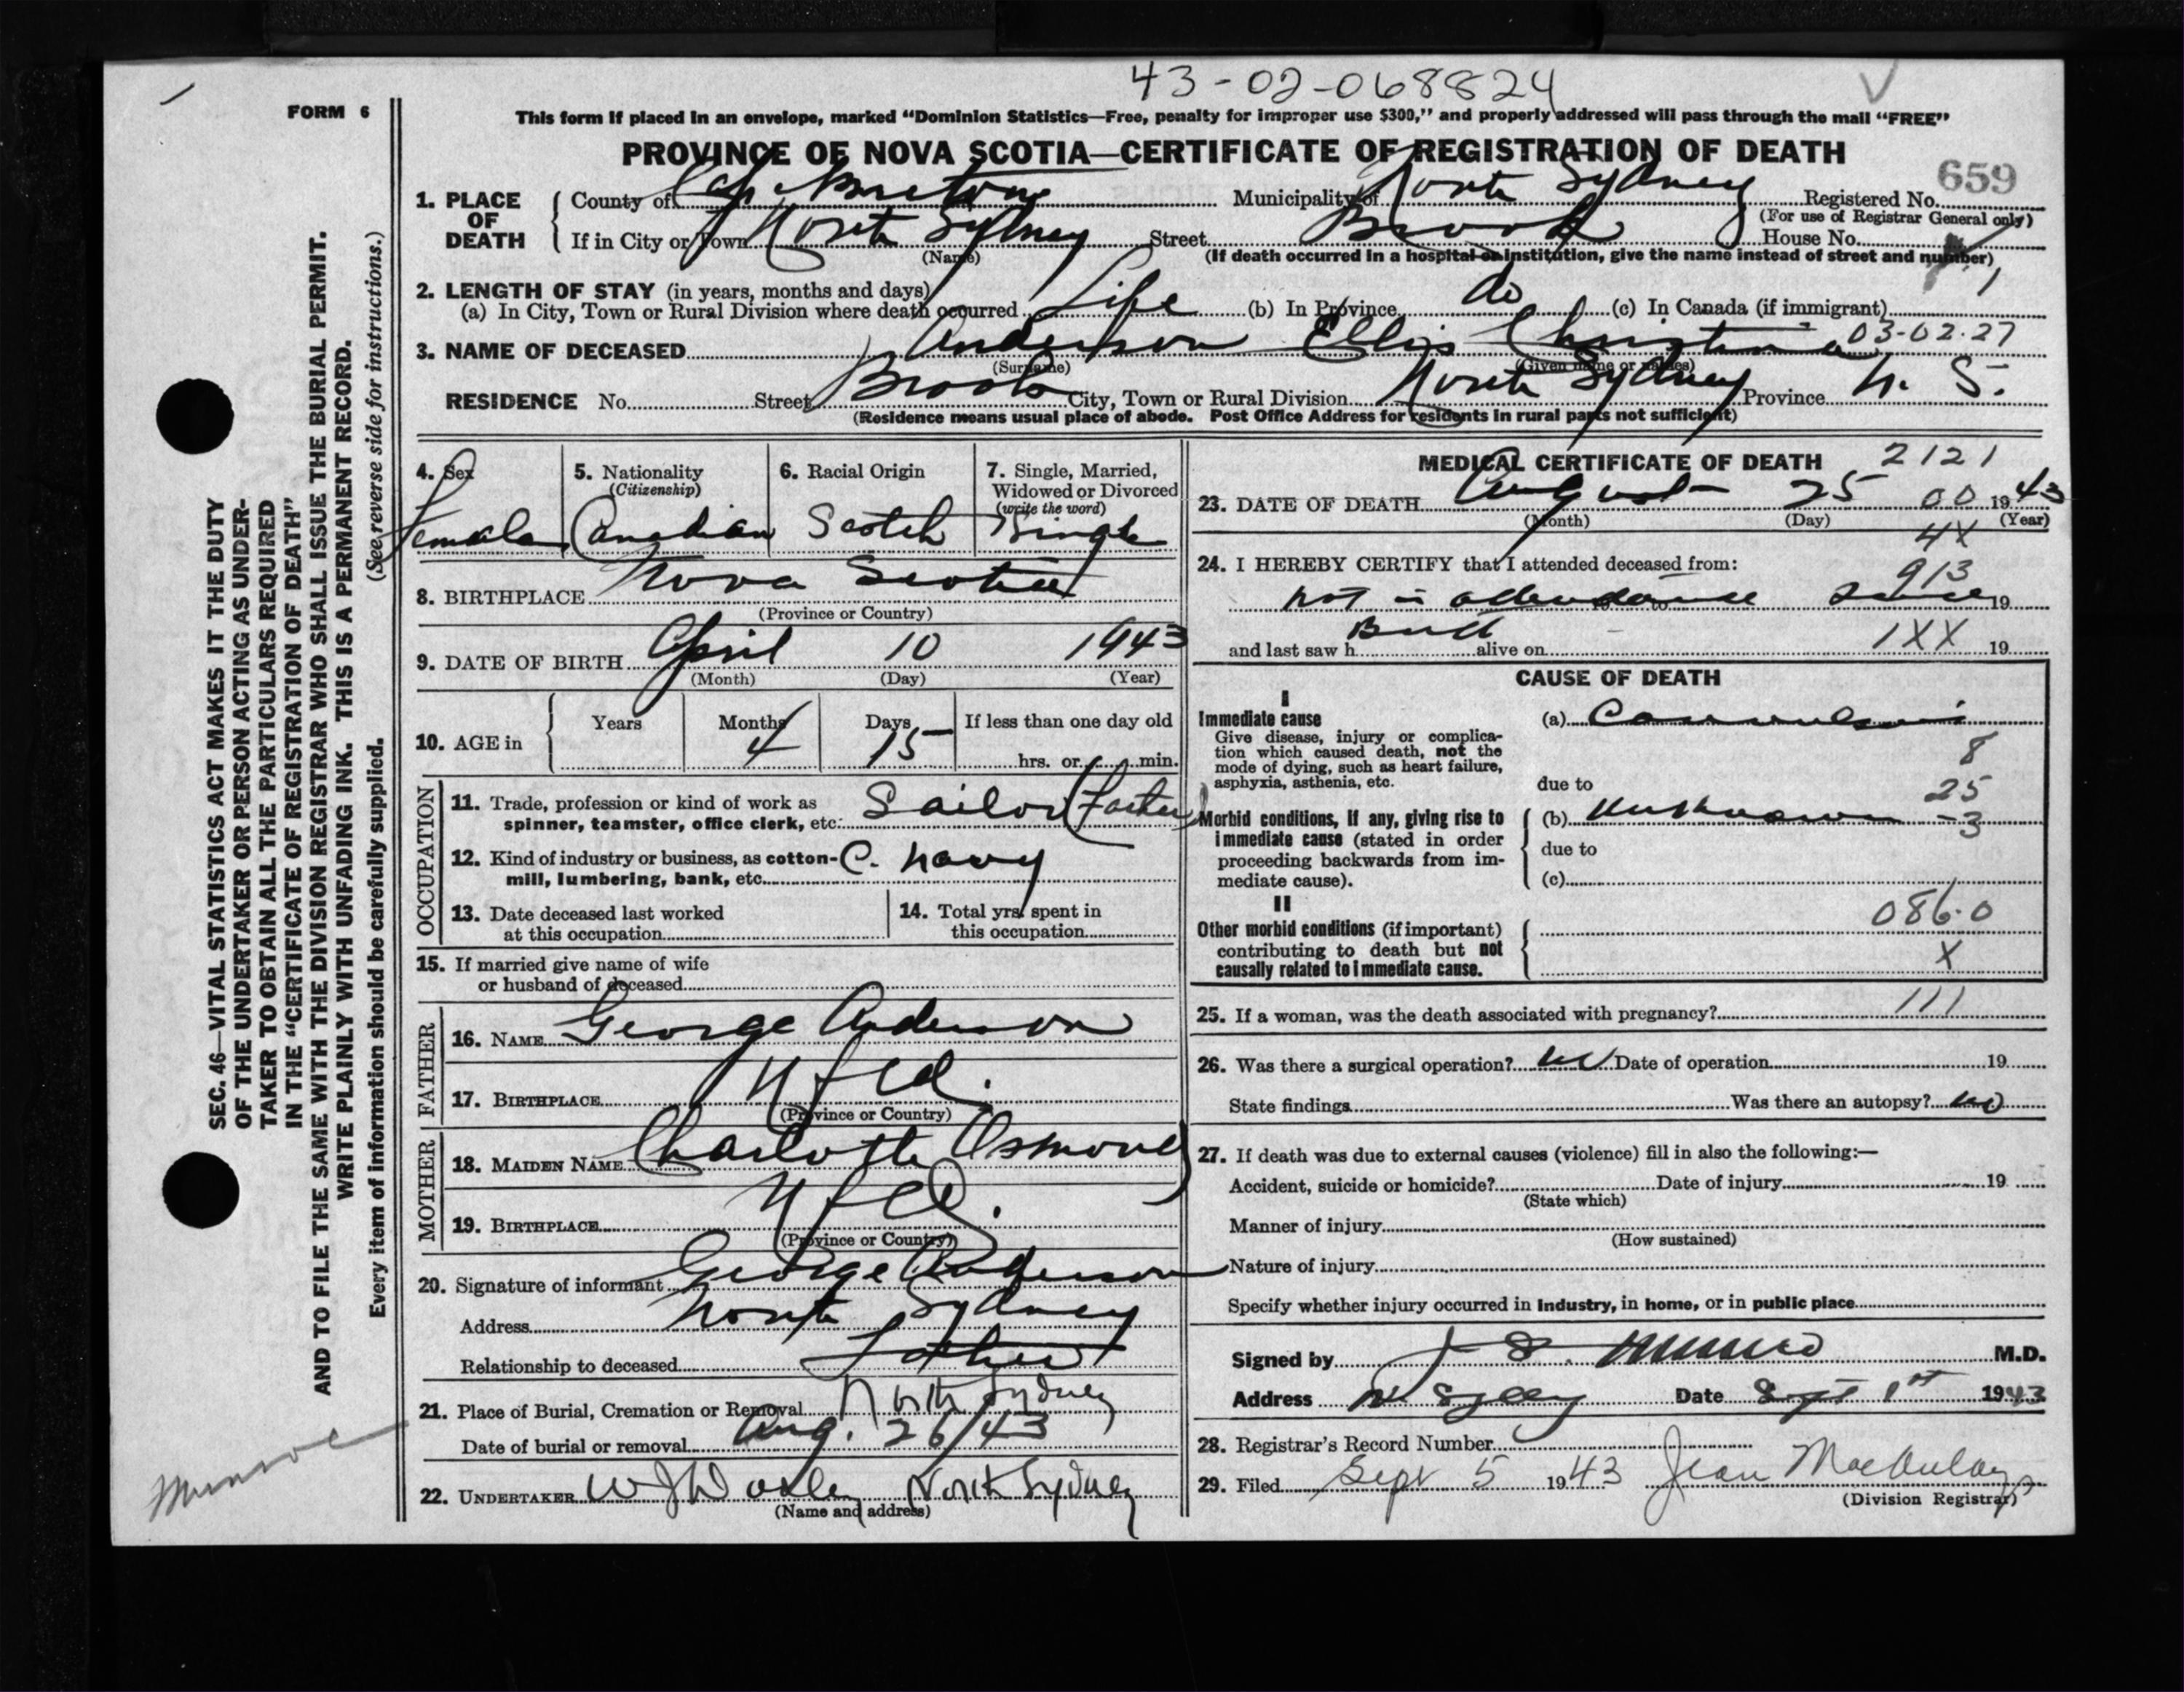 43-02-068824
FORM 6
This form if placed in an envelope, marked "Dominion Statistics—Free, penalty for improper use $300," and properly addressed will pass through the mail "FREE"
PROVINCE OF NOVA SCOTIA—CERTIFICATE OF REGISTRATION OF DEATH
659
1. PLACE OF DEATH
County of Cape Breton Municipality of North Sydney Registered No.
(For use of Registrar General only)
If in City or Town North Sydney Street Brook House No.
(Name) (If death occurred in a hospital or institution, give the name instead of street and number)
2. LENGTH OF STAY (in years, months and days)
(a) In City, Town or Rural Division where death occurred Life (b) In Province do (c) In Canada (if immigrant)
1
3. NAME OF DECEASED Anderson Ellis Christina 03-02-27
(Surname) (Given name or names)
RESIDENCE No. Street Brook City, Town or Rural Division North Sydney Province N. S.
(Residence means usual place of abode. Post Office Address for residents in rural parts not sufficient)
4. Sex
Female
5. Nationality
(Citizenship)
Canadian
6. Racial Origin
Scotch
7. Single, Married,
Widowed or Divorced
(write the word)
Single
8. BIRTHPLACE Nova Scotia
(Province or Country)
9. DATE OF BIRTH April 10 1943
(Month) (Day) (Year)
10. AGE in
Years Months Days If less than one day old
4 15 hrs. or min.
OCCUPATION
11. Trade, profession or kind of work as
spinner, teamster, office clerk, etc. Sailor (Father)
12. Kind of industry or business, as cotton-
mill, lumbering, bank, etc. C. Navy
13. Date deceased last worked
at this occupation
14. Total yrs. spent in
this occupation
15. If married give name of wife
or husband of deceased
FATHER
16. NAME George Anderson
17. BIRTHPLACE Nfld.
(Province or Country)
MOTHER
18. MAIDEN NAME Charlotte Osmond
19. BIRTHPLACE Nfld.
(Province or Country)
20. Signature of informant George Anderson
Address North Sydney
Relationship to deceased Father
21. Place of Burial, Cremation or Removal North Sydney
Date of burial or removal Aug. 26/43
22. UNDERTAKER W J North Sydney
(Name and address)
MEDICAL CERTIFICATE OF DEATH 2121
23. DATE OF DEATH August 25 00 1943
(Month) (Day) (Year)
4X
24. I HEREBY CERTIFY that I attended deceased from:
913
not in attendance since 19
Birth
and last saw h alive on 1XX 19
CAUSE OF DEATH
I
Immediate cause
Give disease, injury or complica-
tion which caused death, not the
mode of dying, such as heart failure,
asphyxia, asthenia, etc.
(a) Convulsions
8
due to
25
Morbid conditions, if any, giving rise to
immediate cause (stated in order
proceeding backwards from im-
mediate cause).
(b) Unknown -3
due to
(c)
II
Other morbid conditions (if important)
contributing to death but not
causally related to immediate cause.
086.0
X
25. If a woman, was the death associated with pregnancy? 111
26. Was there a surgical operation? no Date of operation 19
State findings Was there an autopsy? no
27. If death was due to external causes (violence) fill in also the following:—
Accident, suicide or homicide? Date of injury 19
(State which)
Manner of injury
(How sustained)
Nature of injury
Specify whether injury occurred in industry, in home, or in public place
Signed by Munro M.D.
Address N. Sydney Date Sept 1st 1943
28. Registrar's Record Number
29. Filed Sept 5 1943 Jean MacAulay
(Division Registrar)
SEC. 46—VITAL STATISTICS ACT MAKES IT THE DUTY
OF THE UNDERTAKER OR PERSON ACTING AS UNDER-
TAKER TO OBTAIN ALL THE PARTICULARS REQUIRED
IN THE "CERTIFICATE OF REGISTRATION OF DEATH"
AND TO FILE THE SAME WITH THE DIVISION REGISTRAR WHO SHALL ISSUE THE BURIAL PERMIT.
WRITE PLAINLY WITH UNFADING INK. THIS IS A PERMANENT RECORD.
Every item of information should be carefully supplied. (See reverse side for instructions.)
Munroe